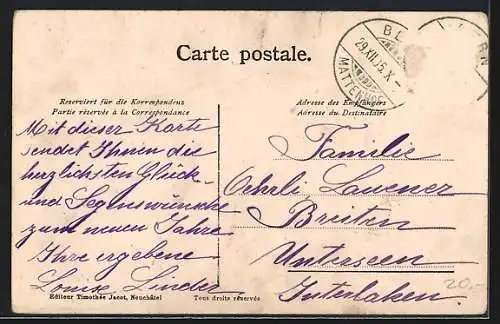 Carte postale.
29.XII.05.X-
MATTENHOF
Reserviert für die Korrespondenz
Partie réservée à la Correspondance
Adresse des Empfängers
Adresse du Destinataire
Mit dieser Karte
sendet Ihnen die
herzlichsten Glück-
und Segenswünsche
zum neuen Jahre
Ihre ergebene
Louise Linder
Familie
Oehrli Lauener
Breiten
Unterseen
Interlaken.
Editeur Timothée Jacot, Neuchâtel
Tous droits réservés
20,-